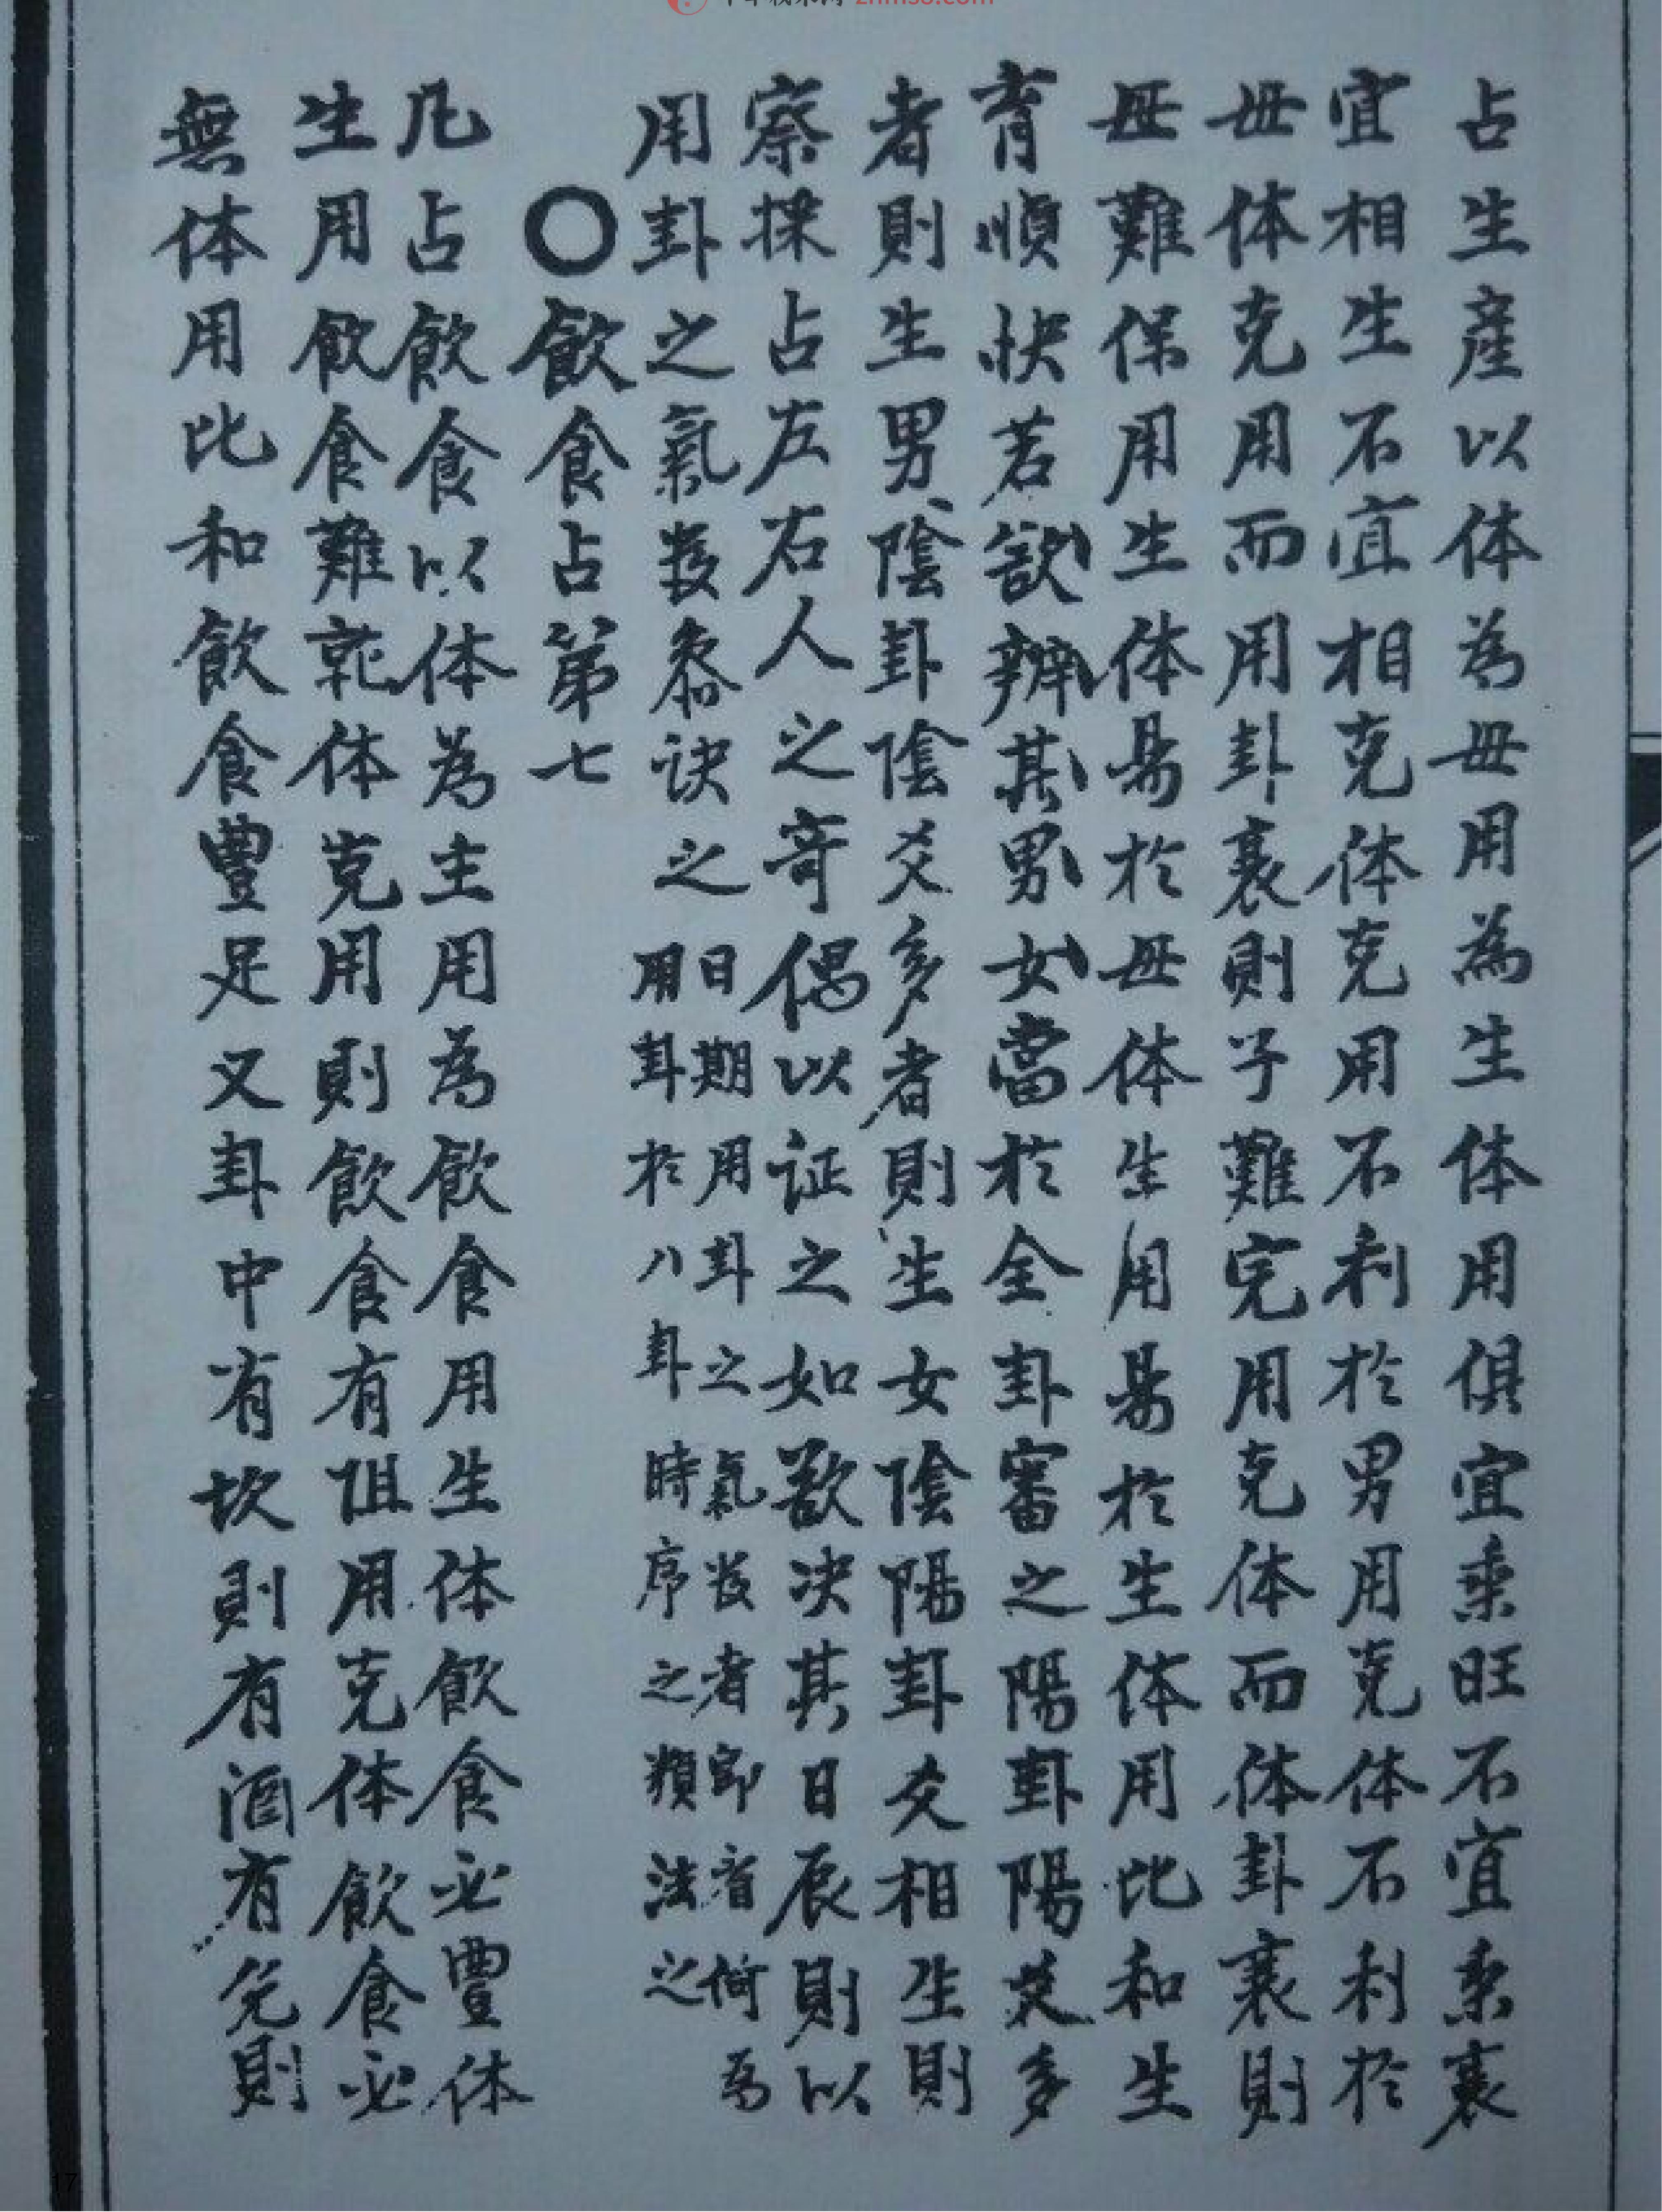 znms8.com
占生產以体為母用為生体用俱宜乘旺不宜乘衰
宜相生不宜相克体克用不利於男用克体不利於
母体克用而用卦衰則子難完用克体而体卦衰則
母難保用生体易於母体生用易於生体用比和生
育順快若欲辨其男女當於全卦審之陽卦陽爻多
者則生男陰卦陰爻多者則生女陰陽卦爻相生則
察採占左右人之奇偶以证之如欲决其日辰則以
用卦之氣数叅诀之
日期用卦之氣数者即者何為
用卦於八卦時序之類法之
〇飲食占第七
凡占飲食以体為主用為飲食用生体飲食必豐体
生用飲食難乾体克用則飲食有阻用克体飲食必
無体用比和飲食豐足又卦中有坎則有酒有兌則
17